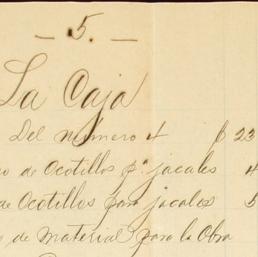 — 5. —
La Caja
Del número 4 $ 23
o de Ocotillos pa. jacales 4
de Ocotillos para jacales 5
s de Material para la Obra